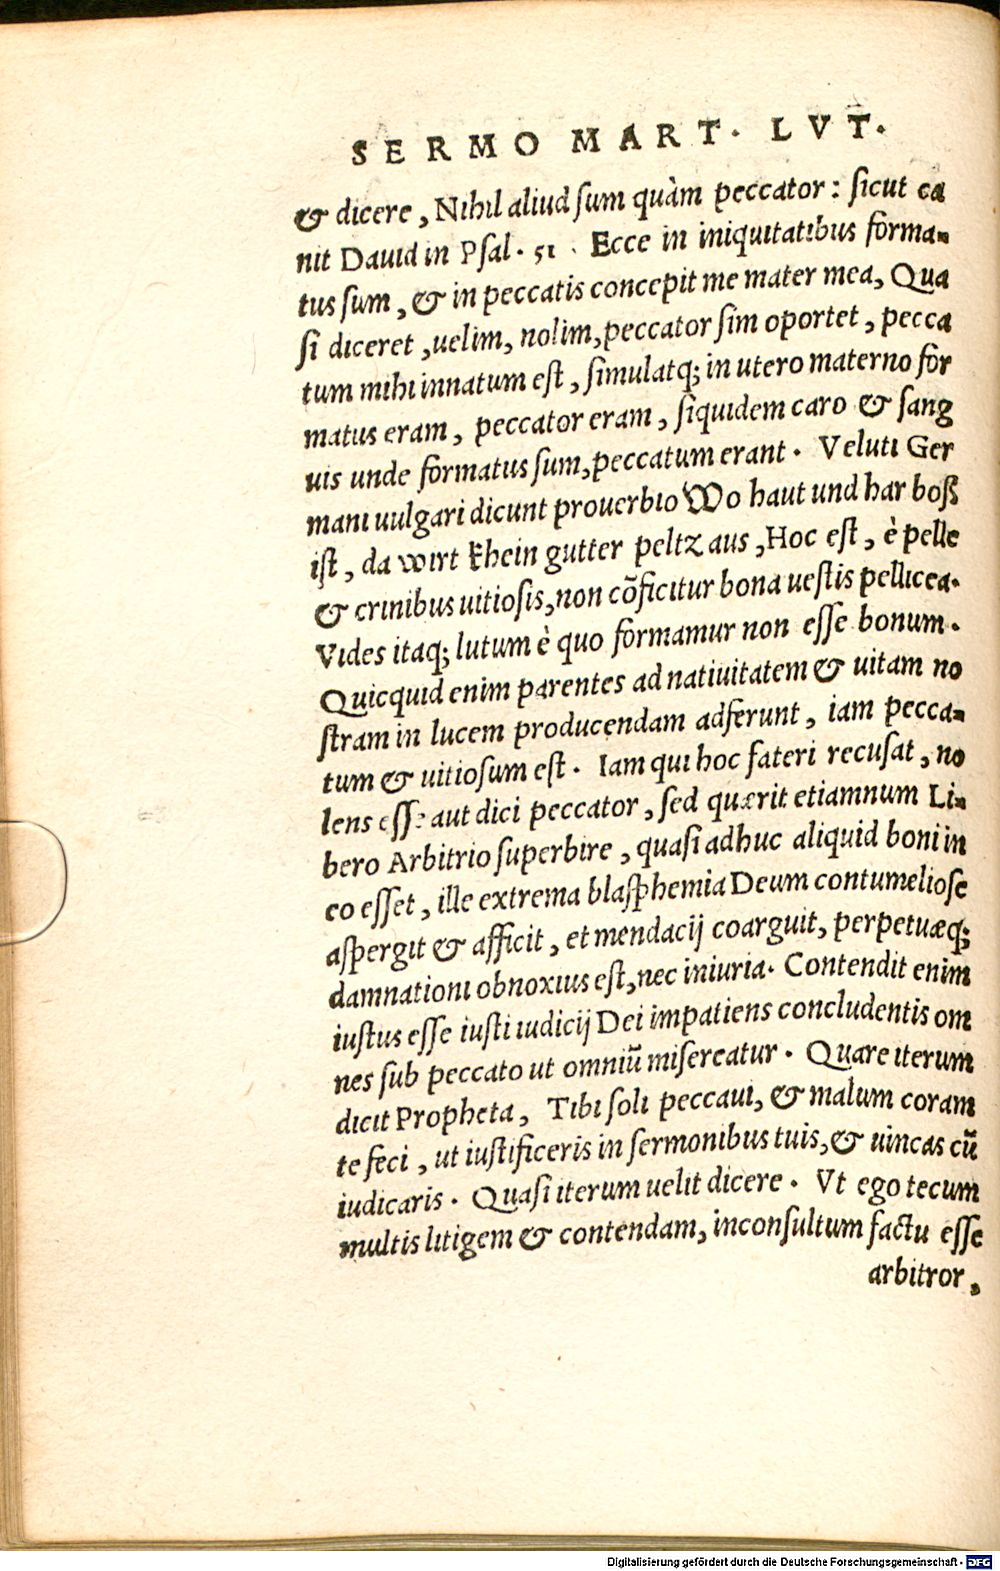 SERMO MART. LVT.
& dicere, Nihil aliud sum quàm peccator: sicut ca
nit Dauid in Psal. 51. Ecce in iniquitatibus forma-
tus sum, & in peccatis concepit me mater mea, Qua
si diceret, uelim, nolim, peccator sim oportet, pecca
tum mihi innatum est, simulatq; in utero materno for
matus eram, peccator eram, siquidem caro & sang
uis unde formatus sum, peccatum erant. Veluti Ger
mani uulgari dicunt prouerbio Wo haut und har boß
ist, da wirt khein gutter peltz aus, Hoc est, è pelle
& crinibus uitiosis, non cõficitur bona uestis pellicea.
Vides itaq; lutum è quo formamur non esse bonum.
Quicquid enim parentes ad natiuitatem & uitam no
stram in lucem producendam adferunt, iam pecca-
tum & uitiosum est. Iam qui hoc fateri recusat, no
lens esse aut dici peccator, sed quærit etiamnum Li-
bero Arbitrio superbire, quasi adhuc aliquid boni in
eo esset, ille extrema blasphemia Deum contumeliose
aspergit & afficit, et mendacij coarguit, perpetuæq;
damnationi obnoxius est, nec iniuria. Contendit enim
iustus esse iusti iudicij Dei impatiens concludentis om
nes sub peccato ut omniũ misereatur. Quare iterum
dicit Propheta, Tibi soli peccaui, & malum coram
te feci, ut iustificeris in sermonibus tuis, & uincas cũ
iudicaris. Quasi iterum uelit dicere. Vt ego tecum
multis litigem & contendam, inconsultum factu esse
arbitror,
Digitalisierung gefördert durch die Deutsche Forschungsgemeinschaft - DFG